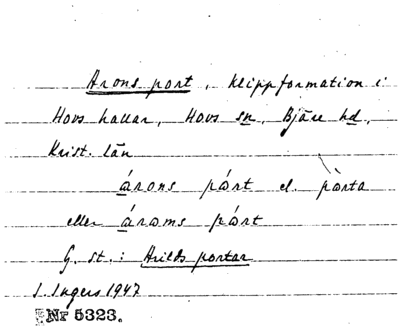 Arons port, klippformation i
Hovs hallar, Hovs sn, Bjäre hd,
Krist. län
árons pórt el. pòrta
eller ároms pórt
G. st.: Arilds portar
I. Ingers 1947
Nr 5323.